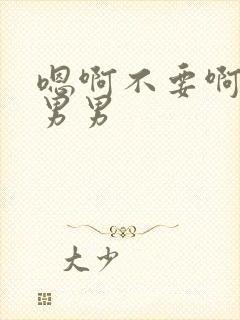 嗯啊不要啊
男男
大少